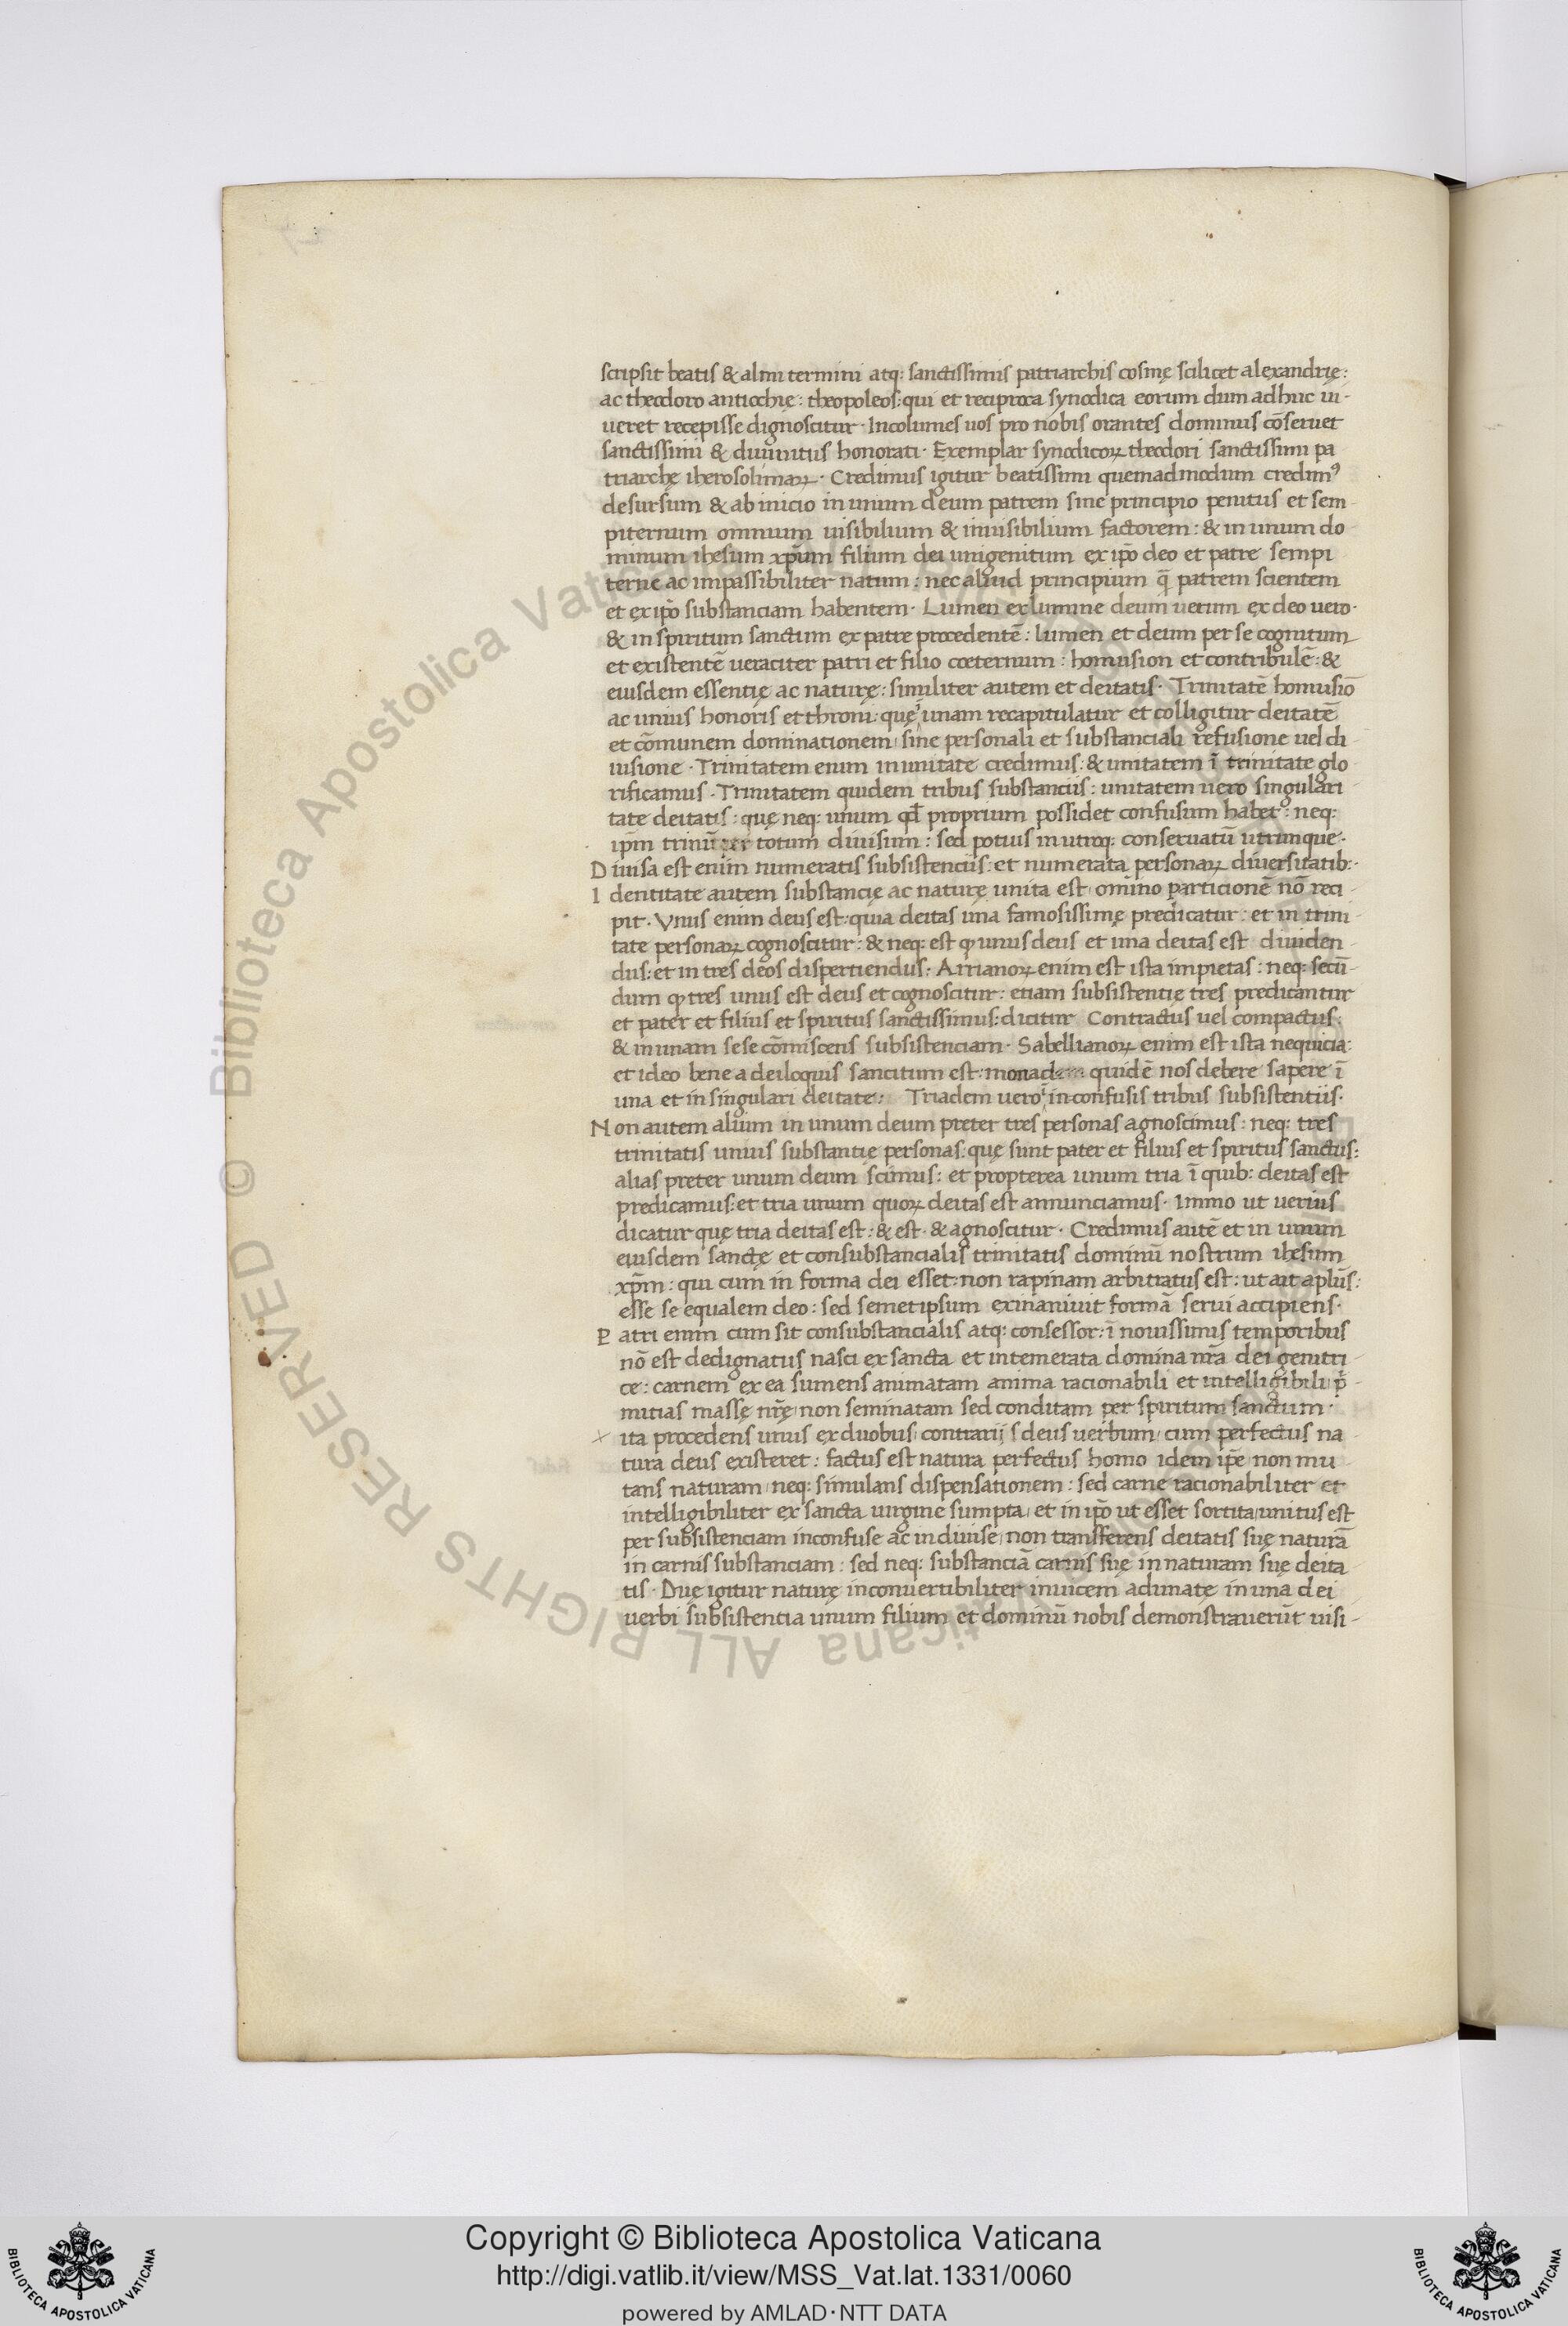 scripsit beatis & almi termini atq: sanctissimis patriarchis cosmę scilicet alexandrię:
ac theodoro antiochię: theopoleos: qui et reciproca synodica eorum dum adhuc ui-
ueret recepisse dignoscitur· Incolumes uos pro nobis orantes dominus cōseruet
sanctissimi & diuinitus honorati· Exemplar synodicoꝝ theodori sanctissimi pa
triarchę iherosolimaꝝ· Credimus igitur beatissimi quemadmodum credimꝰ
desursum & ab inicio in unum deum patrem sine principio penitus et sem-
piternum omnium uisibilium & inuisibilium factorem: & in unum do-
minum ihesum xp̄um filium dei unigenitum ex ip̄o deo et patre sempi
terne ac impassibiliter natum: nec aliud principium q̄ patrem scientem
et ex ip̄o substanciam habentem· Lumen ex lumine deum uerum ex deo uero·
& in spiritum sanctum ex patre procedentē: lumen et deum per se cognitum
et existentē ueraciter patri et filio coeternum: homusion et contribulē: &
eiusdem essentię ac naturę: similiter autem et deitatis· Trinitatē homusiō
ac unius honoris et throni: quę ĩ unam recapitulatur et colligitur deitatē
et cōmunem dominationem, sine personali et substanciali refusione uel di
uisione· Trinitatem enim in unitate credimus: & unitatem ī trinitate glo
rificamus· Trinitatem quidem tribus substanciis: unitatem uero singulari
tate deitatis: quę neq: unum qd̄ proprium possidet confusum habet: neq:
ip̄m trinū per totum diuisum: sed potius in utroq: conseruatū utrimque·
Diuisa est enim numeratis subsistenciis: et numerata personaꝝ diuersitatib:·
Identitate autem substancię ac naturę unita est, omīno particionē nō reci-
pit· Vnus enim deus est: quia deitas una famosissimę predicatur: et in trini-
tate personaꝝ cognoscitur: & neq: est ꝙ unus deus et una deitas est diuiden-
dus: et in tres deos dispertiendus: Arrianoꝝ enim est ista impietas: neq: secū-
dum ꝙ tres unus est deus et cognoscitur: etiam subsistentię tres predicantur
et pater et filius et spiritus sanctissimus: dicitur Contractus uel compactus:
& in unam sese cōmiscens subsistenciam· Sabellianoꝝ enim est ista nequicia:
et ideo bene a deiloquis sancitum est: monadem quidē nos debere sapere ī
una et in singulari deitate: Triadem uero ĩ inconfusis tribus subsistentiis·
Non autem alium in unum deum preter tres personas agnoscimus: neq: tres
trinitatis unius substantię personas: quę sunt pater et filius et spiritus sanctus:
alias preter unum deum scimus: et propterea unum tria ī quib: deitas est
predicamus: et tria unum quoꝝ deitas est annunciamus· Immo ut uerius
dicatur quę tria deitas est: & est· & agnoscitur· Credimus autē et in unum
eiusdem sanctę et consubstancialis trinitatis dominū nostrum ihesum
xp̄m: qui cum in forma dei esset: non rapinam arbitratus est: ut ait apl̄us:
esse se equalem deo: sed semetipsum exinaniuit formā serui accipiens·
Patri enim cum sit consubstancialis atq: consessor: ī nouissimis temporibus
nō est dedignatus nasci ex sancta et intemerata domina nr̄a dei genitri-
ce: carnem ex ea sumens animatam anima racionabili et intelligibili, p̄-
mitias massę nr̄ę, non seminatam sed conditam per spiritum sanctum·
ita procedens unus ex duobus, contrariis deus uerbum, cum perfectus na
tura deus existeret: factus est natura perfectus homo idem ip̄e non mu
tans naturam, neq: simulans dispensationem: sed carne racionabiliter et
intelligibiliter ex sancta uirgine sumpta, et in ip̄o ut esset sortita, unitus est
per subsistenciam inconfuse ac indiuise, non transferens deitatis suę naturā
in carnis substanciam: sed neq: substanciā carnis suę in naturam suę deita
tis· Duę igitur naturę inconuertibiliter inuicem adunatę in una dei
uerbi subsistencia unum filium et dominū nobis demonstrauerūt uisi-
© Biblioteca Apostolica Vaticana
ALL RIGHTS RESERVED
Copyright © Biblioteca Apostolica Vaticana
http://digi.vatlib.it/view/MSS_Vat.lat.1331/0060
powered by AMLAD·NTT DATA
BIBLIOTECA APOSTOLICA VATICANA
BIBLIOTECA APOSTOLICA VATICANA